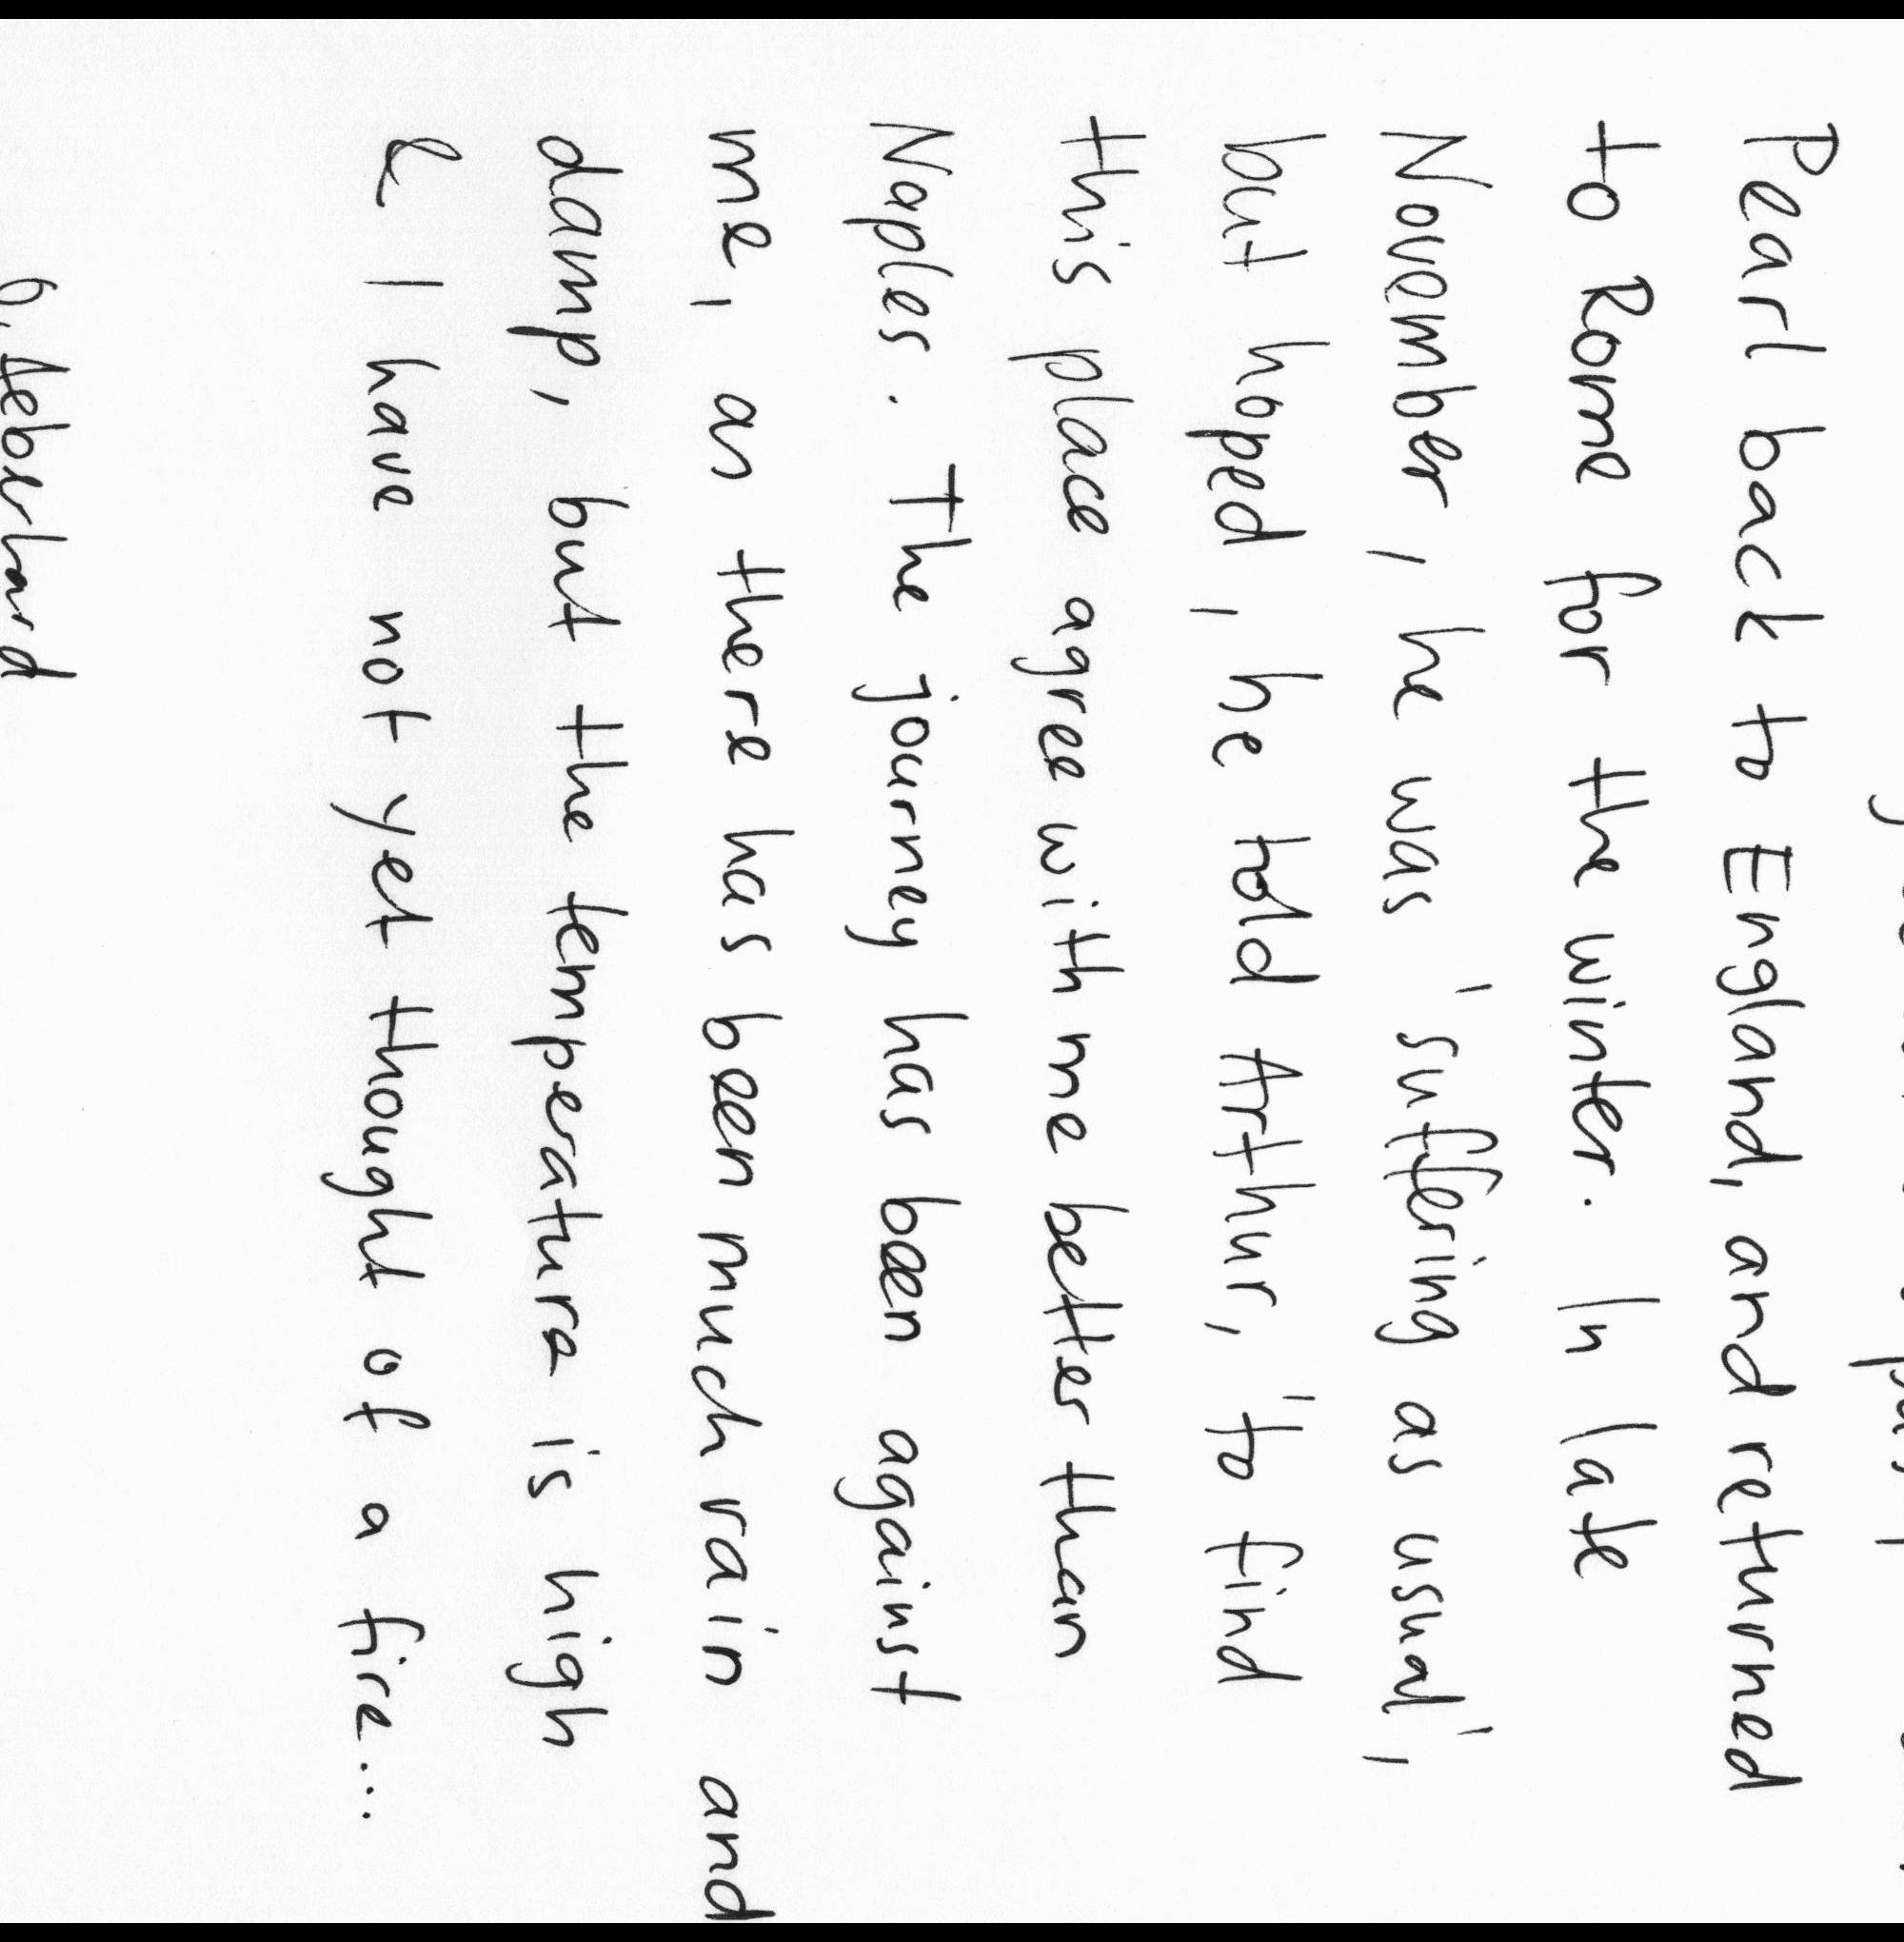 Pearl back to England, and returned
to Rome for the winter. In late
November, he was 'suffering as usual',
but hoped, he told Arthur, "to find
this place agree with me better than
Naples. The journey has been against
me, as there has been much rain and
damp, but the temperature is high
& I have not yet thought of a fire...